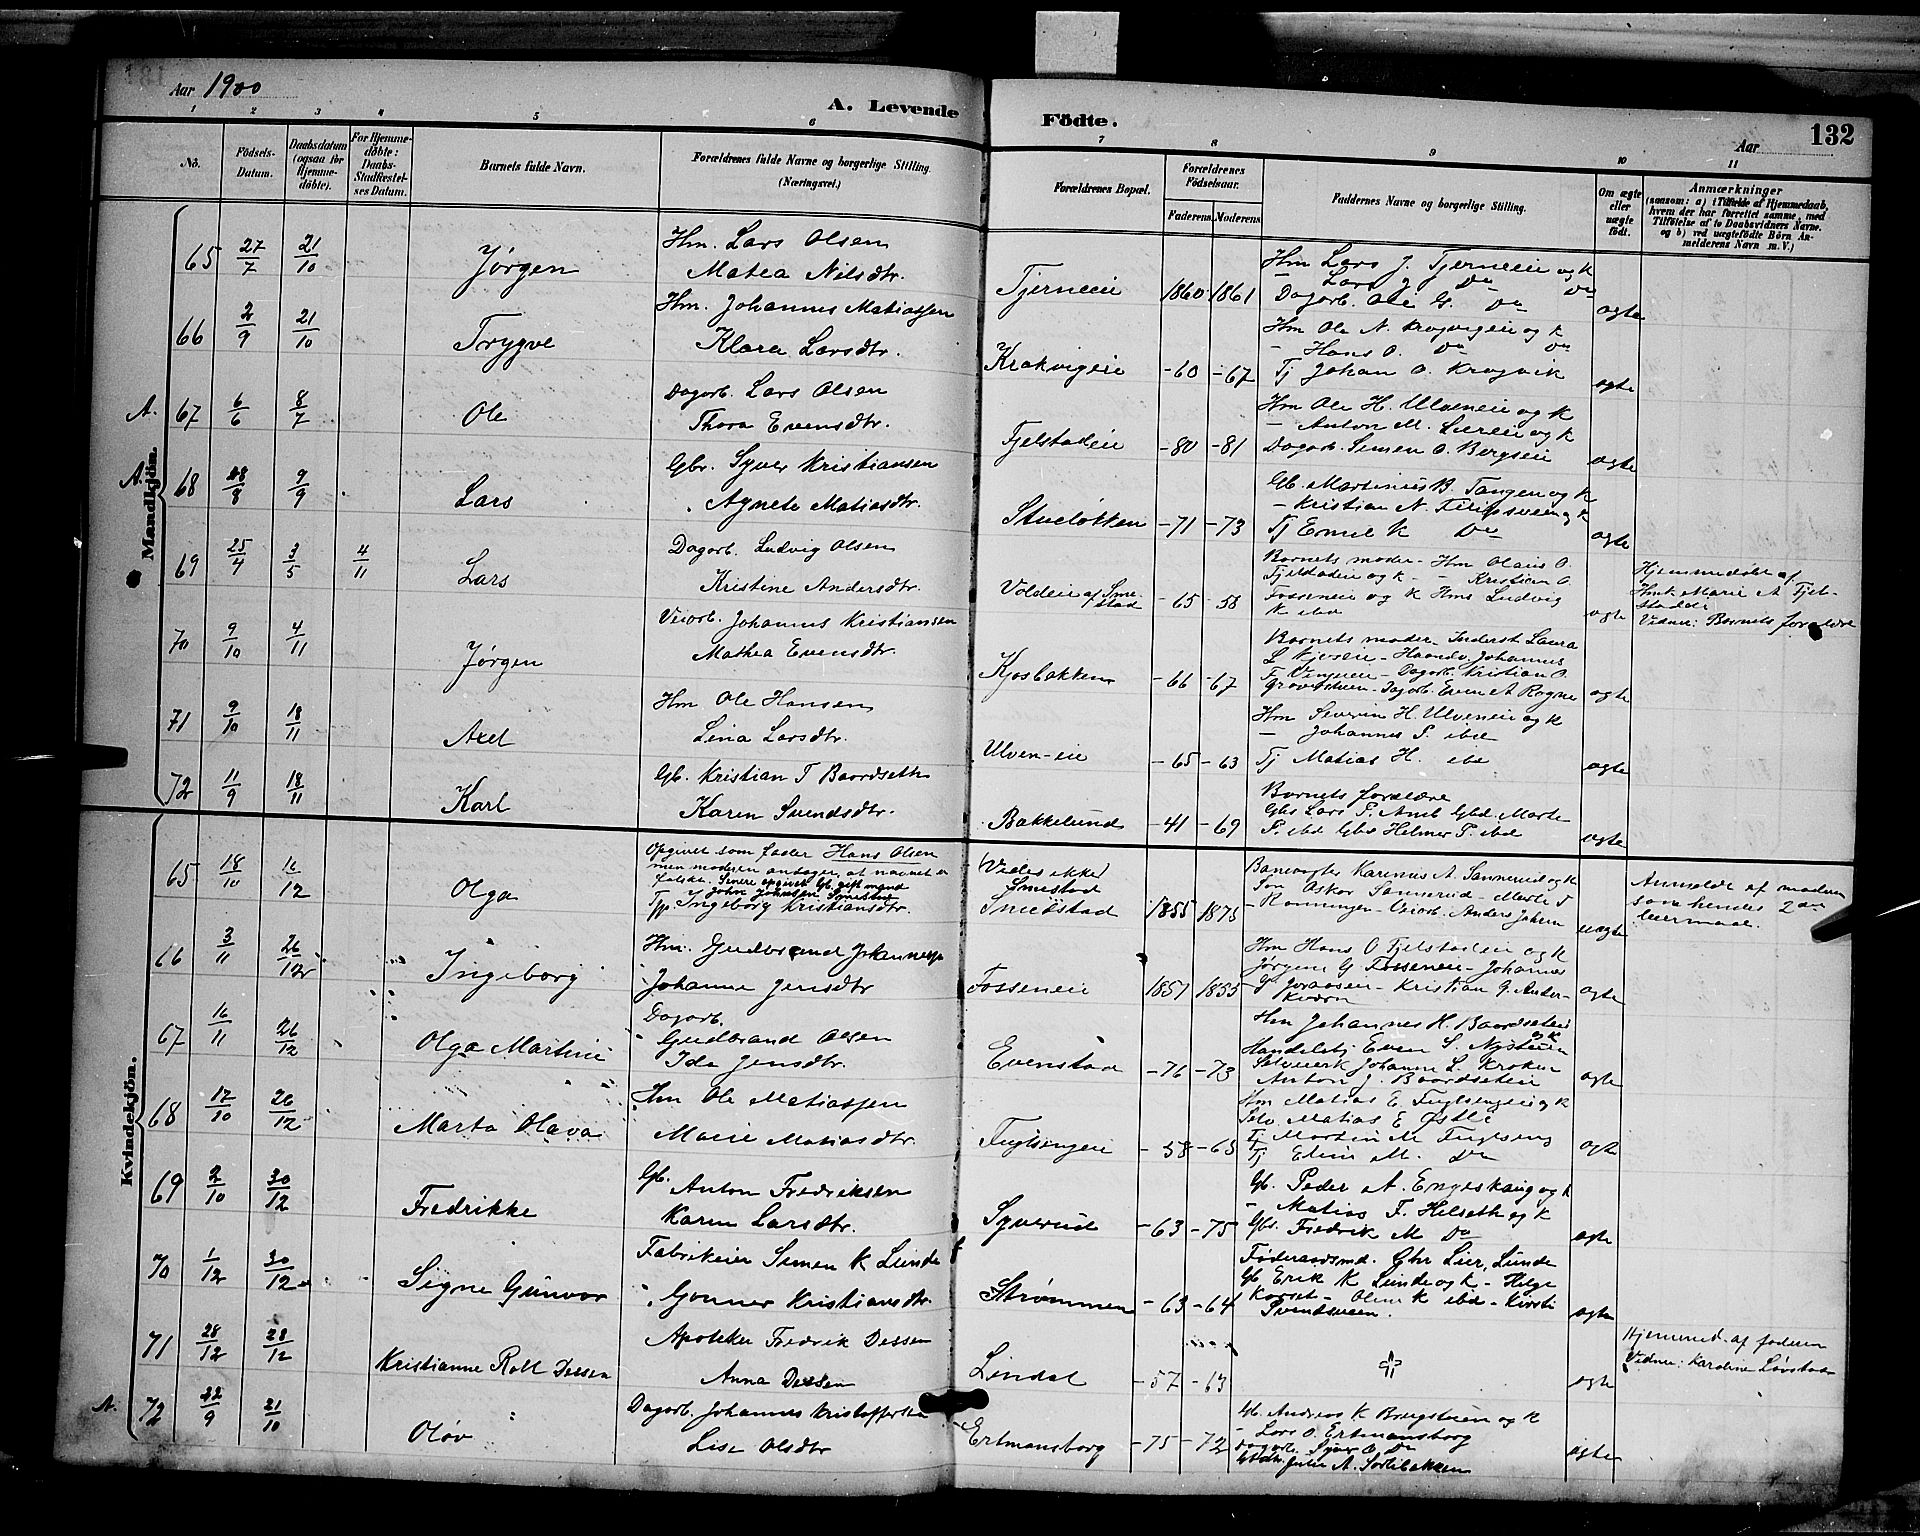 Aar 1900
A. Levende Födte.
Aar
132
1 2 3 4 5 6 7 8 9 10 11
No.
Födsels-Datum.
Daabsdatum (ogsaa for Hjemme-döbte).
For Hjemme-döbte: Daabs-Stadfæstel-ses Datum.
Barnets fulde Navn.
Forældrenes fulde Navne og borgerlige Stilling. (Næringsvei.)
Forældrenes Bopæl.
Forældrenes Födselsaar.
Faderens. Moderens.
Faddernes Navne og borgerlige Stilling.
Om ægte eller uægte födt.
Anmærkninger (saasom: a) i Tilfælde af Hjemmedaab, hvem der har forrettet samme, med Tilföielse af to Daabsvidners Navne. og b) ved uægtefödte Börn Anmelderens Navn m. V.)
Mandkjön.
65 27/7 21/10 Jørgen
Hm. Lars Olsen
Matea Nilsdtr.
Tjerneeie 1860 1861
Hm Lars J. Tjerneeie og k
— Lars J Do Do
Dagarb. Ole G. Do
ægte
66 2/9 21/10 Trygve
Hm. Johannes Matiassen
Klara Larsdtr.
Krakvigeie -60 -67
Hm Ole N. Krogvigeie og k
— Hans O. Do Do
Tj Johan O. Krogvik
ægte
A. 67 6/6 8/7 Ole
Dagarb. Lars Olsen
Thora Evensdtr.
Fjelstadeie -80 -81
Hm Ole H. Ulveneie og k
— Anton M. Liereie og k
Dagarb. Simen O. Bergseie
ægte
A. 68 8/8 9/9 Lars
Gbr. Syver Kristiansen
Agnete Matiasdtr.
Stueløkken -71 -73
Gb. Martinius B. Tangen og k
— Kristian N. Filipsveen og k
Tj Emil K Do
ægte
69 25/4 3/5 4/11 Lars
Dagarb. Ludvig Olsen
Kristine Andersdtr.
Voldeie af Sme-
stad -65 -58
Barnets moder - Hm Olaus O.
Fjelstadeie og k - Kristian O.
Fosseneie og k Hms Ludvig
K ibd
ægte
Hjemmedøbt af
Hmk Marie A Fjel-
stadeie
Vidner: Barnets forældre
70 9/10 4/11 Jørgen
Veiarb. Johannes Kristiansen
Mathea Evensdtr.
Kjosbakken -66 -67
Barnets moder - Inderst Laura
Johannes
Dagarb. Kristian O.
Dagarb. Even A Rogne
ægte
71 9/10 18/11 Axel
Hm Ole Hansen
Lina Larsdtr.
Ulven-eie -65 -63
Hm Severin H. Ulveneie og k
— Johannes P. ibd
Tj Matias H. ibd
ægte
72 11/9 18/11 Karl
Gb. Kristian T Baardseth
Karen Svendsdtr.
Bakkelund -41 -69
Barnets forældre
Gbs Lars P. Amb Gbd Marte
P. ibd Gbs Helmer P. ibd
ægte
Kvindekjön.
65 18/10 /12 Olga
Opgivet som fader Hans Olsen
men moderen antager, at navnet er
falskt. Senere opgivet Gb. gift mand
John Johnsen Smestad
Tjp. Ingeborg Kristiansdtr.
Vides ikke
Smestad
Smedstad 1855 1875
Banevogter Karenus A. Sannerud og k
Tom Askor Sannerud - Marte S
Ronningen - Veiarb. Anders Johnsen
uægte
Anmeldt af moderen
som hendes 2det
leiermaal.
66 3/11 26/12 Ingeborg
Hm. Gudbrand Johannesen
Johanne Jensdtr
Fosseneie 1851 1855
Hm Hans O Fjelstadeie og k
Jørgine G Fosseneie - Johannes
- Kristian G. Ander-
kvern
ægte
67 16/11 26/12 Olga Martine
Dagarb.
Gudbrand Olsen
Ida Jensdtr.
Evenstad -76 -73
Hm Johannes H. Baardseteie
og k
Handelsbj Even S. Nysteien
Selveierk Johanne L. Kroken
Anton J. Baardseteie
ægte
68 17/10 26/12 Marta Olava
Hm Ole Matiassen
Marie Matiasdtr.
Fuglsengeie -58 -65
Hm Matias E. Fuglsengeie og k
Selv. Matias E Østli
Tj Martin M Fuglseng
Tj Elin M. Do
ægte
69 2/10 30/12 Fredrikke
Gb. Anton Fredriksen
Karen Larsdtr.
Syverud -63 -75
Gb. Peder A. Engeskaug og k
— Matias F. Helseth og k
Gbr. Fredrik M Do
ægte
70 1/12 30/12 Signe Gunvor
Fabrikeier Simen K Lunde
Gonner Kristiansdtr.
Strømmen -63 -64
Føderaadsmd. Gbr Lier, Lunde
Gb. Erik K Lunde og k - Helge
Korset - Oline K ibd - Kirsti
Svendsveen.
ægte
71 28/12 28/12 Kristianne Roll Dessen
Apoteker Fredrik Dessen
Anna Dessen
Lindal -57 -63
ægte
Hjemmed. af faderen
Vidne: Karoline Løvstad
A. 72 22/9 21/10 Oløv
Dagarb. Johannes Kristoffersen
Lise Olsdtr
Ertmansborg -75 -72
Gb. Andreas K Brugstuen og k
— Lars O. Ertmansborg
Dagarb. Syver O. Do
Julie A. Sorlibakken
ægte